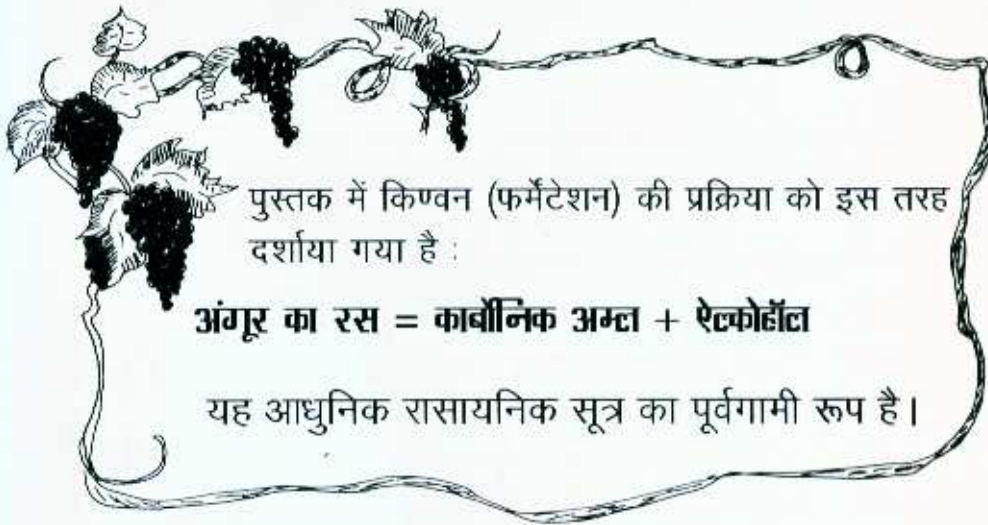 पुस्तक में किण्वन (फर्मेंटेशन) की प्रक्रिया को इस तरह
दर्शाया गया है :
अंगूर का रस = कार्बोनिक अम्ल + ऐल्कोहॉल
यह आधुनिक रासायनिक सूत्र का पूर्वगामी रूप है।